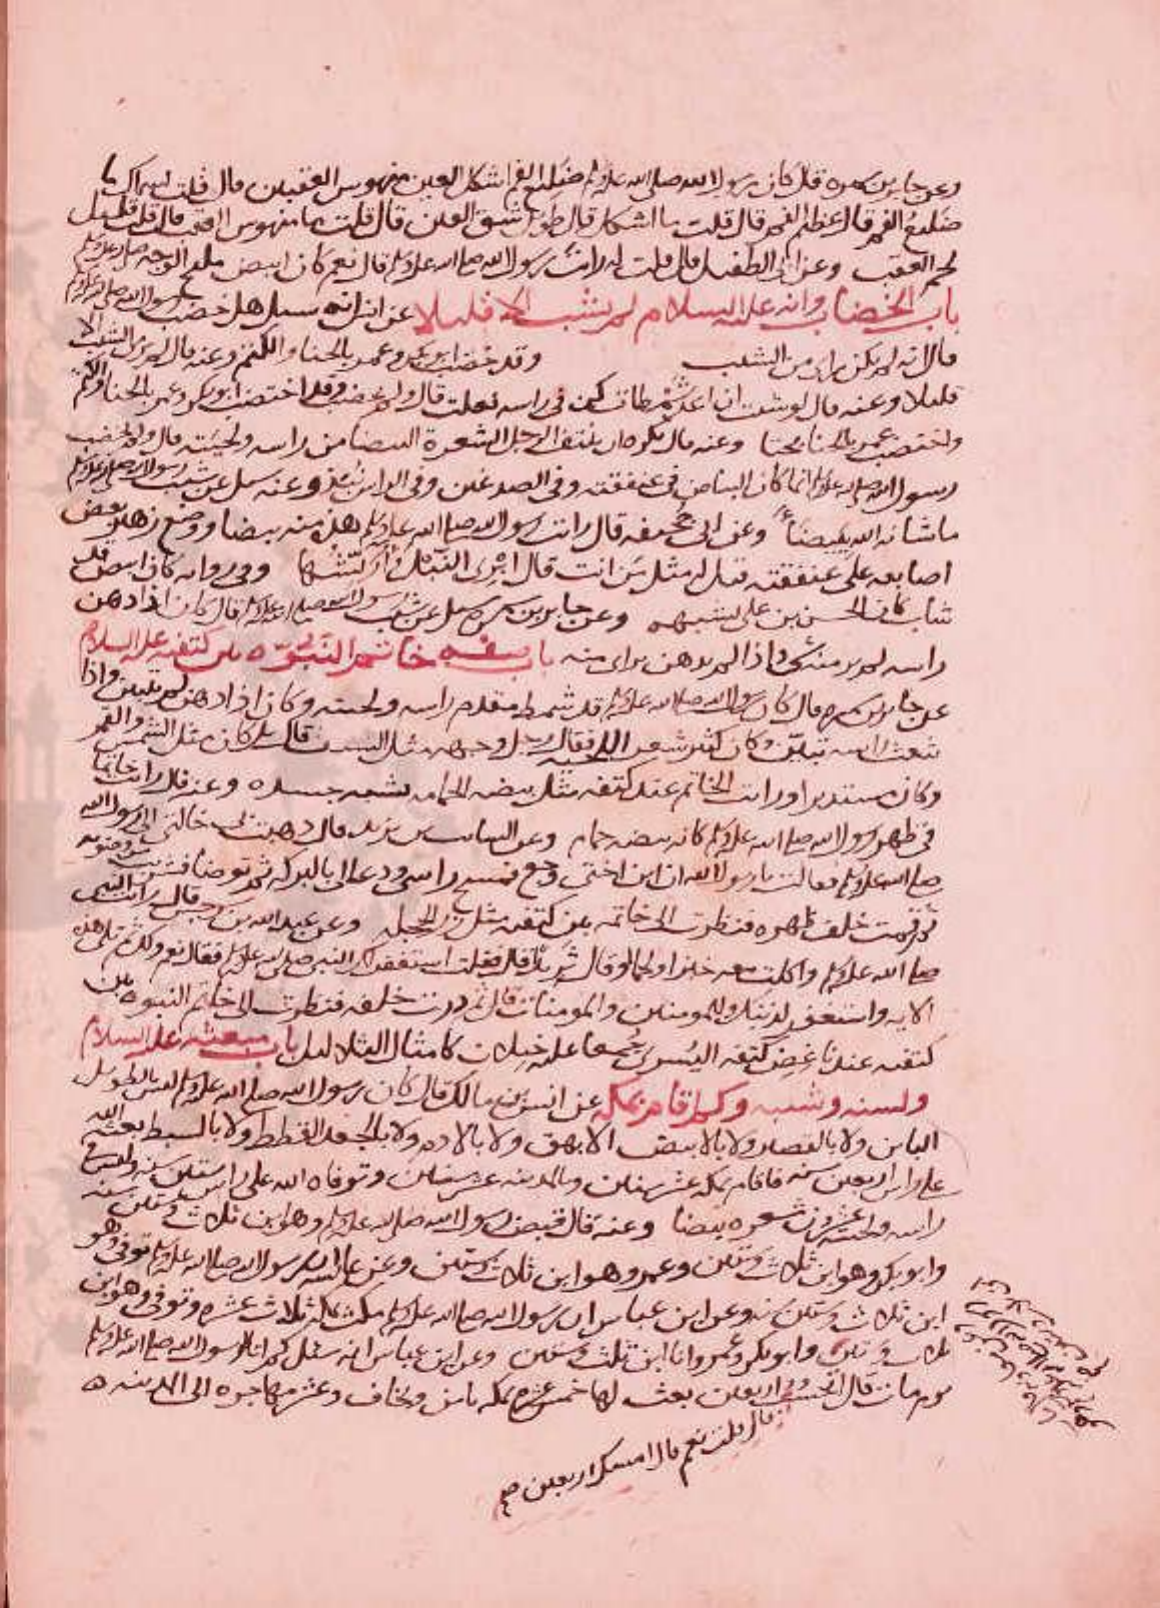 وعن جابر بن سمره قال كان رسول الله صلى الله عليه وسلم ضليع الفم اشكل العين منهوس العقبين قال قلت لسماك ما
ضليع الفم قال عظيم الفم قال قلت ما اشكل قال طويل شق العين قال قلت ما منهوس العقب قال قليل
لحم العقب وعن ابي الطفيل قال قلت له رايت رسول الله صلى الله عليه وسلم قال نعم كان ابيض مليح الوجه صلى الله عليه وسلم
باب الخضاب وانه عليه السلام لم يشب الا قليلا عن انس انه سيل هل خضب رسول الله صلى الله عليه وسلم
قال انه لم يكن راى من الشيب وقد خضب ابو بكر وعمر بالحنا والكتم وعنه قال لم ير من الشيب الا
قليلا وعنه قال لو شيت ان اعد شمطات كن في راسه فعلت قال ولم يخضب وقد اختضب ابو بكر وعمر بالحنا والكتم
واختضب عمر بالحنا بحتا وعنه قال يكره ان ينتف الرجل الشعرة البيضا من راسه ولحيته قال ولم يخضب
رسول الله صلى الله عليه وسلم انما كان البياض في عنفقته وفي الصدغين وفي الراس نبذ وعنه سيل عن شيب رسول الله صلى الله عليه وسلم
ما شانه الله ببيضاء وعن ابي جحيفه قال رايت رسول الله صلى الله عليه وسلم هذه منه بيضا ووضع زهير بعض
اصابعه على عنفقته قيل له مثل من انت قال ابري النبل واريشها وفي روايه كان ابيض قد
شاب كان الحسن بن علي يشبهه وعن جابر بن سمره سيل عن شيب رسول الله صلى الله عليه وسلم قال كان اذا دهن
راسه لم ير منه شي واذا لم يدهن راى منه باب صفة خاتم النبوة بين كتفيه عليه السلام
عن جابر بن سمره قال كان رسول الله صلى الله عليه وسلم قد شمط مقدم راسه ولحيته وكان اذا ادهن لم يتبين واذا
شعث راسه تبين وكان كثير شعر اللحيه فقال رجل وجهه مثل السيف قال بل كان مثل الشمس والقمر
وكان مستديرا ورايت الخاتم عند كتفه مثل بيضه الحمامه يشبه جسده وعنه قال رايت خاتما
في ظهر رسول الله صلى الله عليه وسلم كانه بيضه حمام وعن السايب بن يزيد قال ذهبت بي خالتي الى رسول الله
صلى الله عليه وسلم فقالت يا رسول الله ان ابن اختي وجع فمسح راسي ودعا لي بالبركه ثم توضا فشربت من وضويه
ثم قمت خلف ظهره فنظرت الى خاتمه بين كتفيه مثل زر الحجله وعن عبد الله بن سرجس قال رايت النبي
صلى الله عليه وسلم واكلت معه خبزا ولحما او قال ثريدا قال فقلت استغفر لك النبي صلى الله عليه وسلم فقال نعم ولك ثم تلى هذه
الايه واستغفر لذنبك وللمومنين والمومنات قال ثم درت خلفه فنظرت الى خاتم النبوه بين
كتفيه عند ناغض كتفه اليسرى جمعا عليه خيلان كامثال الثاليل باب مبعثه عليه السلام
ولسنه وشيبه وكم اقام بمكه عن انس بن مالك قال كان رسول الله صلى الله عليه وسلم ليس بالطويل
الباين ولا بالقصير ولا بالابيض الامهق ولا بالادم ولا بالجعد القطط ولا بالسبط بعثه الله
على راس اربعين سنه فاقام بمكه عشر سنين وبالمدينه عشر سنين وتوفاه الله على راس ستين سنه وليس في
راسه ولحيته عشرون شعره بيضا وعنه قال قبض رسول الله صلى الله عليه وسلم وهو ابن ثلاث وستين سنه
وابو بكر وهو ابن ثلاث وستين وعمر وهو ابن ثلاث وستين وعن عايشه ان رسول الله صلى الله عليه وسلم توفي وهو
ابن ثلاث وستين سنه وعن ابن عباس ان رسول الله صلى الله عليه وسلم مكث بمكه ثلاث عشره وتوفي وهو ابن
ثلاث وستين وابو بكر وعمر وانا ابن ثلث وستين وعن ابن عباس انه سيل كم اتى لرسول الله صلى الله عليه وسلم
يوم مات قال اتحسب قال قلت نعم قال امسك اربعين صح اربعين بعث لها خمس عشره بمكه يامن ويخاف وعشر مهاجره الى المدينه